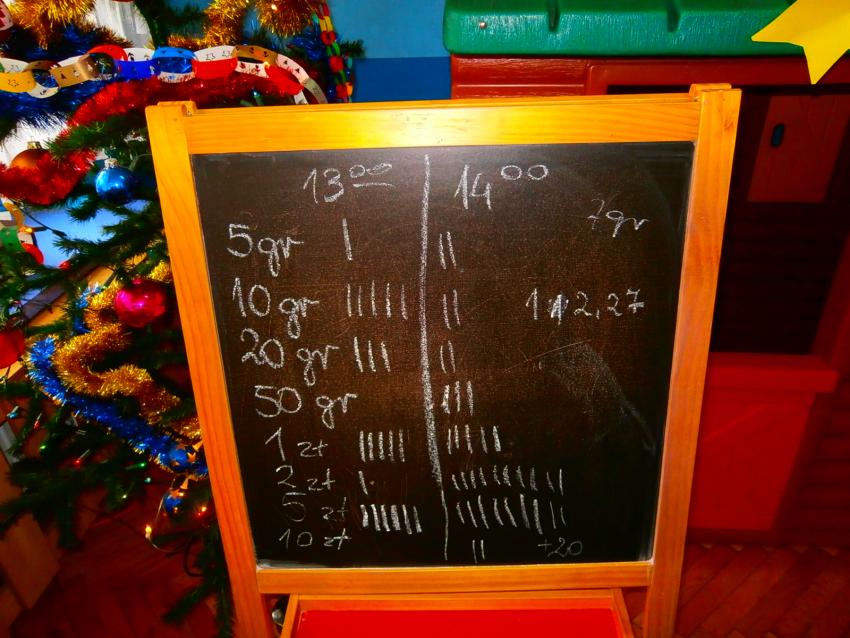 13⁰⁰ 14⁰⁰
7gr
5gr | ||
10gr ||||| || 1 2,27
20gr ||| ||
50 gr |||
1 zł ||||| |||||
2 zł |
5 zł
10 zł || +20